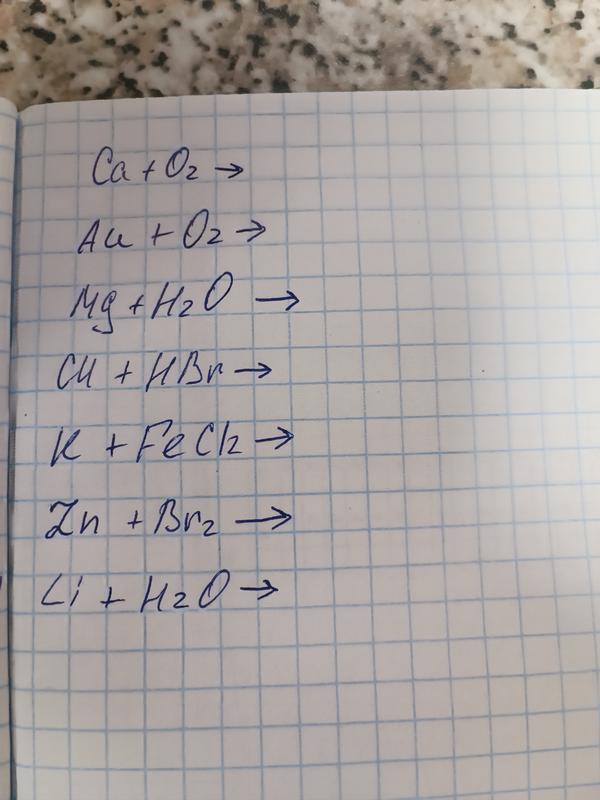 Ca + O2 →
Au + O2 →
Mg + H2O →
Cu + HBr →
K + FeCl2 →
Zn + Br2 →
Li + H2O →